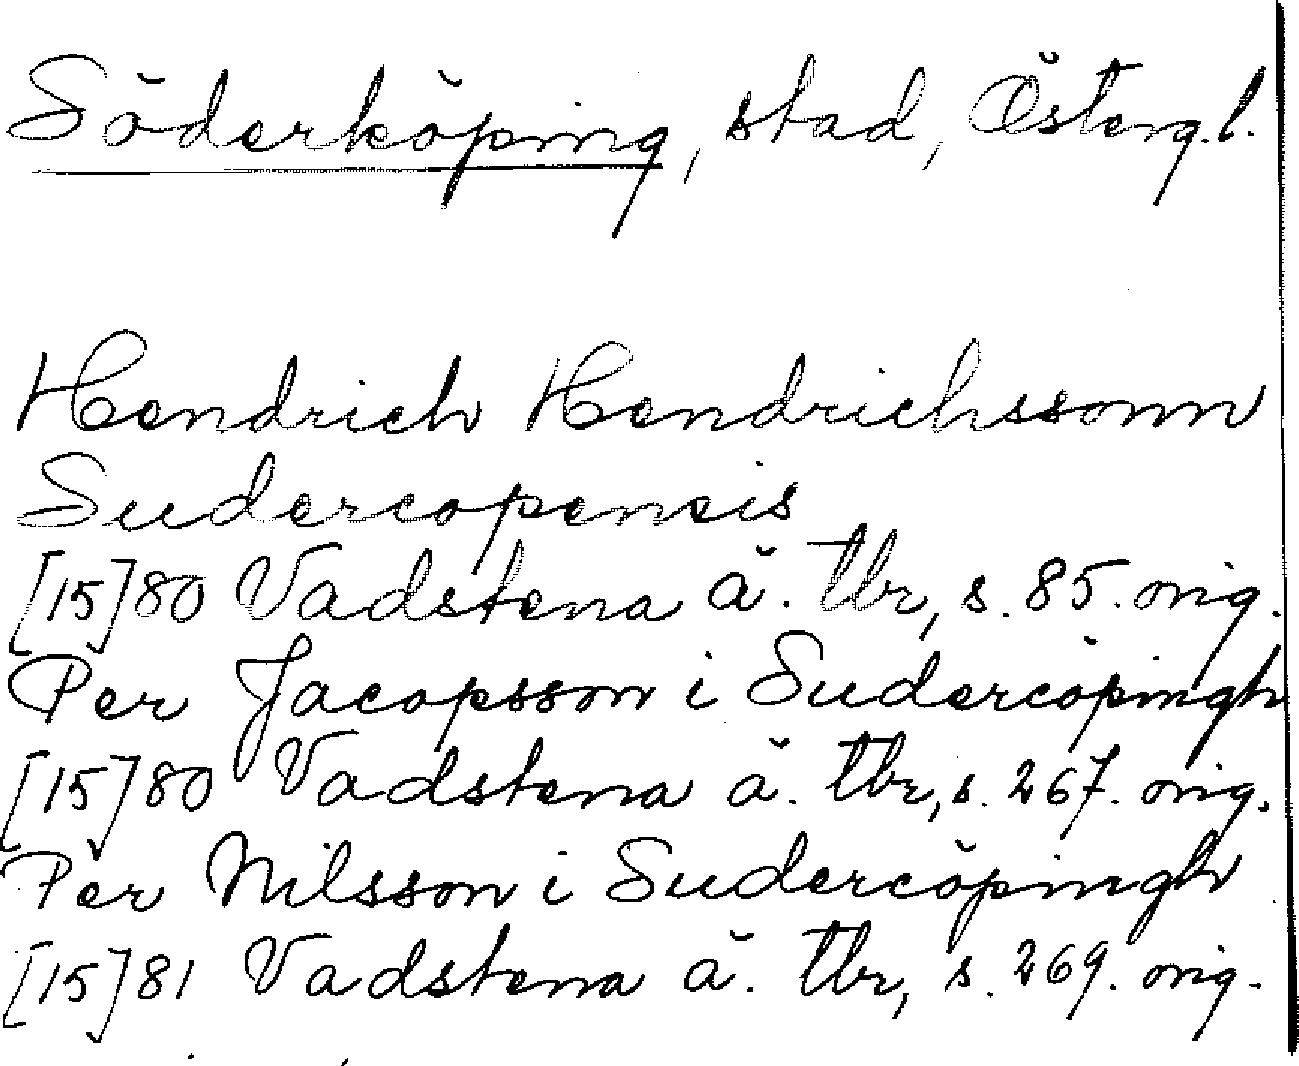 Söderköping, stad, Österg.l.
Hendrich Hendrichssonn
Sudercopensis
[15]80 Vadstena ä. tbr, s. 85. orig.
Per Jacopsson i Sudercöpingh
[15]80 Vadstena ä. tbr, s. 267. orig.
Per Nilsson i Sudercöpingh
[15]81 Vadstena ä. tbr, s. 269. orig.